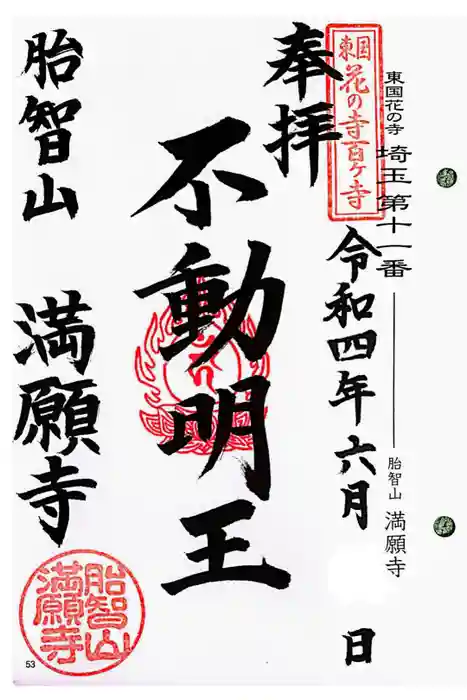 東国花の寺 埼玉第十一番
胎智山 満願寺
東国
花の寺百ケ寺
奉拝
令和四年六月 日
不動明王
胎智山 満願寺
胎智山
満願寺
53